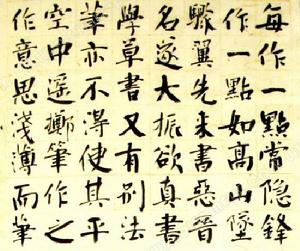 每作一點常隱鋒
作一點如高山墜
驟翼先來書惡晉
名遂大振欲真書
學草書又有別法
華亦不得使其平
空中遥擲筆作之
作意思淺薄而筆